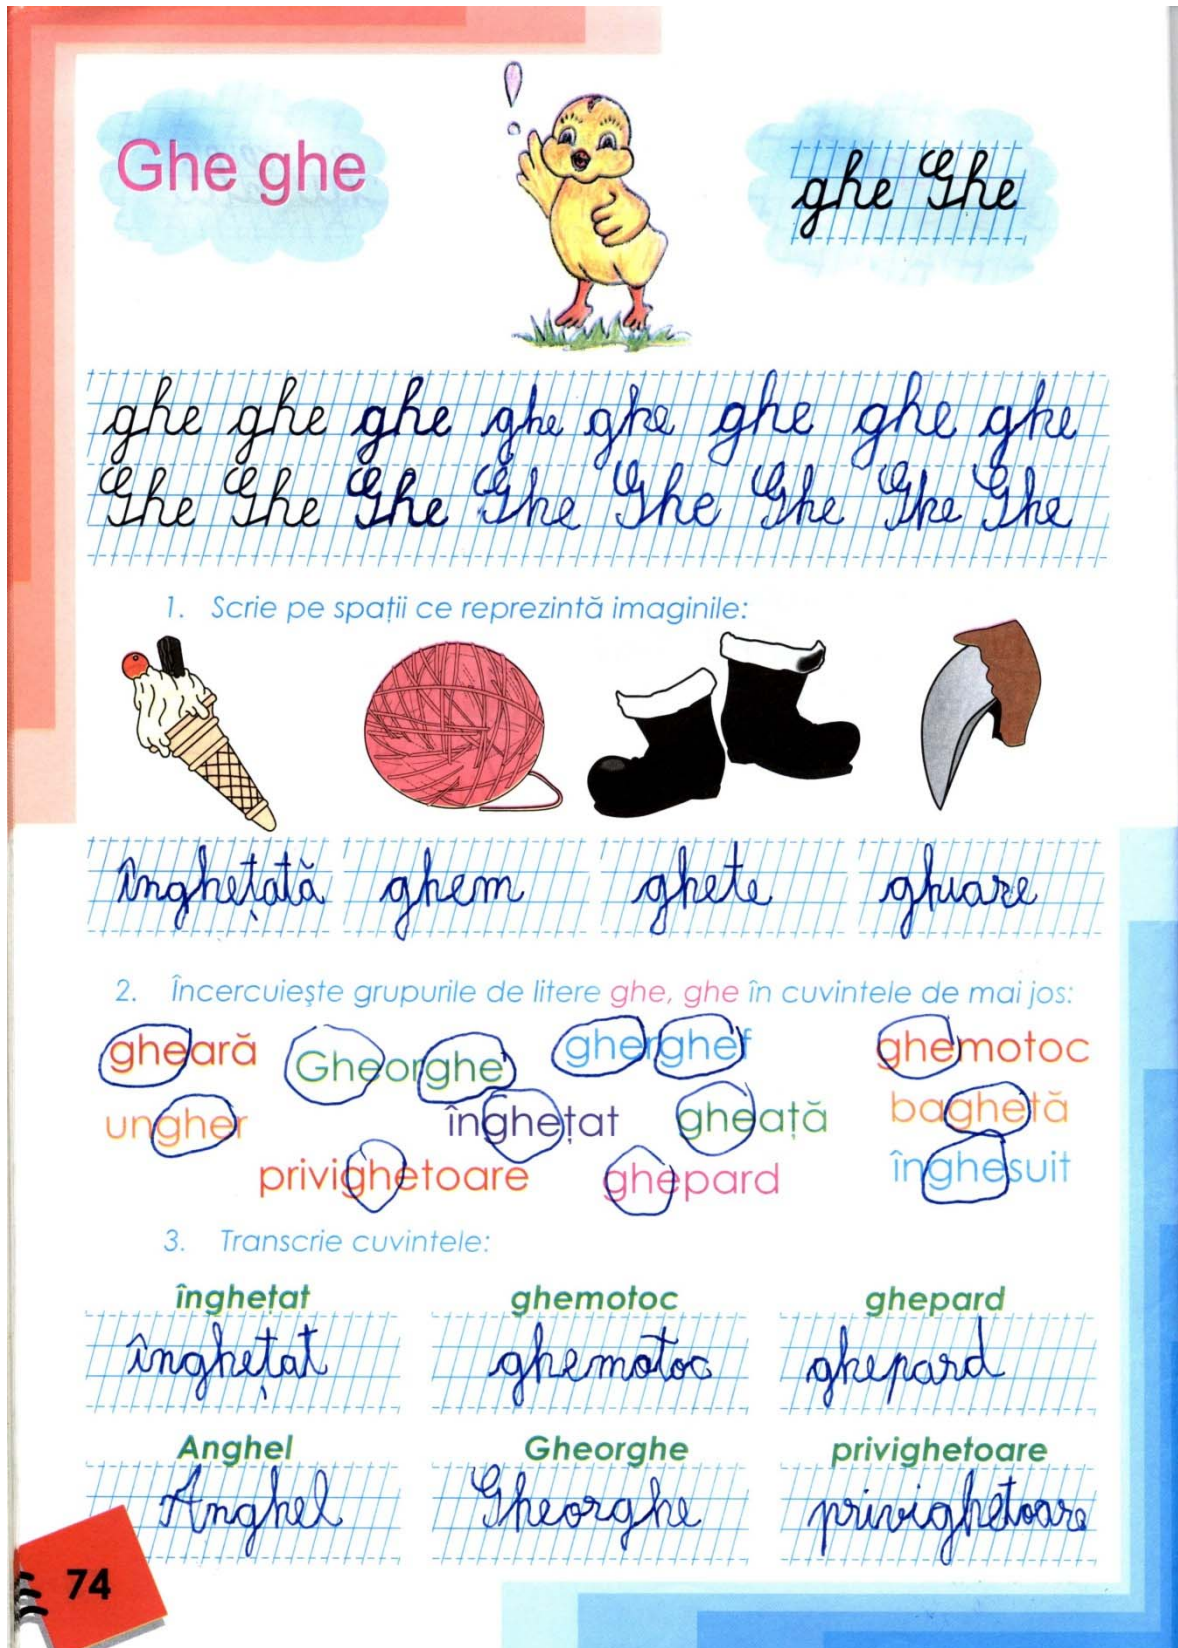 Ghe ghe
ghe Ghe
ghe ghe ghe ghe ghe ghe ghe ghe
Ghe Ghe Ghe Ghe Ghe Ghe Ghe Ghe
1. Scrie pe spații ce reprezintă imaginile:
înghețată ghem ghete ghiare
2. Încercuiește grupurile de litere ghe, ghe în cuvintele de mai jos:
gheară Gheorghe gherghef ghemotoc
ungher înghețat gheață baghetă
privighetoare ghepard înghesuit
3. Transcrie cuvintele:
înghețat ghemotoc ghepard
înghețat ghemotoc ghepard
Anghel Gheorghe privighetoare
Anghel Gheorghe privighetoare
74